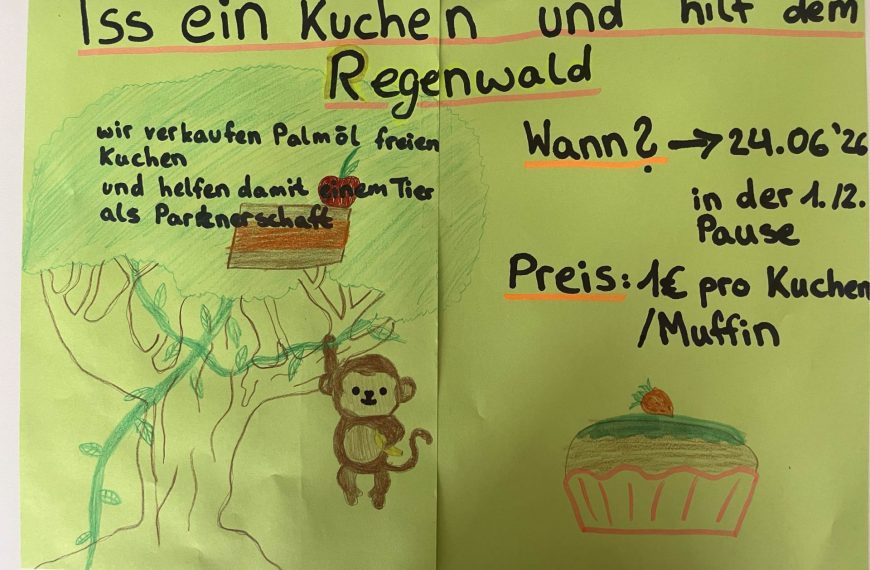 Iss ein Kuchen und hilf dem
Regenwald
wir verkaufen Palmöl freien
Kuchen
und helfen damit einem Tier
als Partnerschaft
Wann? → 24.06'26
in der 1./2.
Pause
Preis: 1€ pro Kuchen
/Muffin